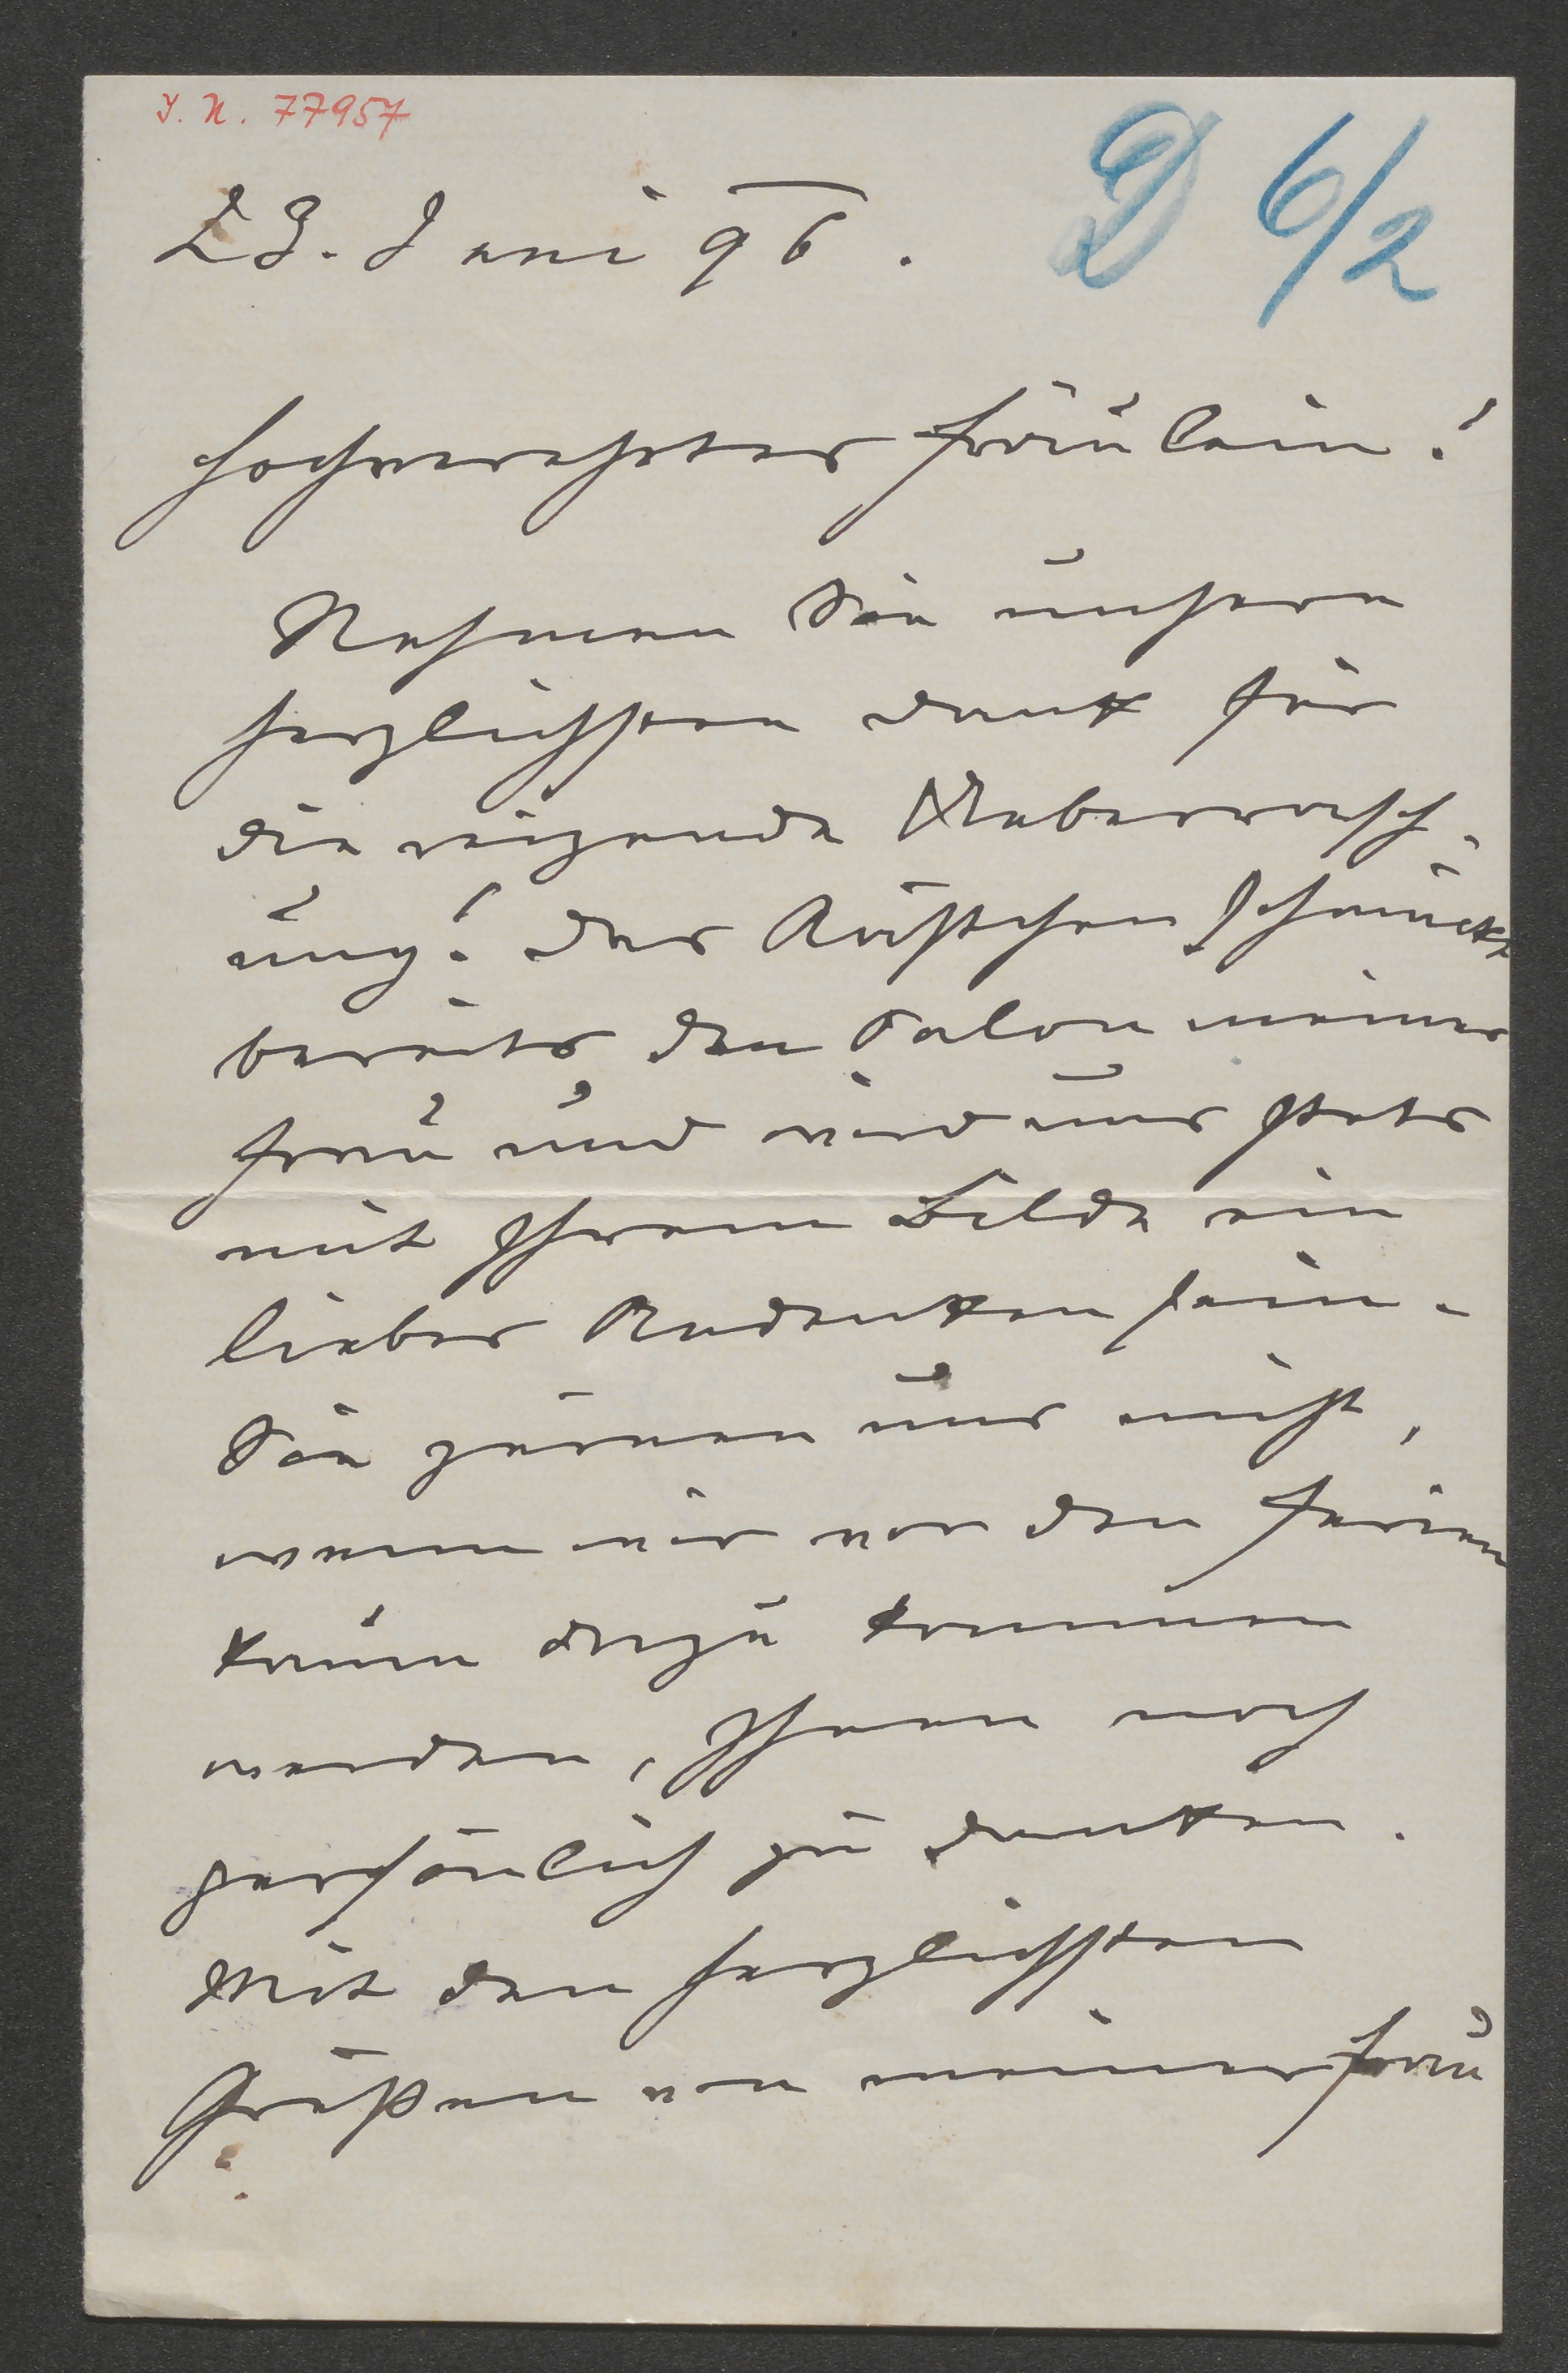 J. N. 77957
D 6/2
23. Juni 96.
Hochverehrtes Fräulein!
Nehmen Sie unsern
herzlichsten Dank für
die reizende Ueberrasch-
ung! Das Kästchen schmückt
bereits den Salon meiner
Frau und wird uns stets
mit Ihrem Bilde ein
liebes Andenken sein.
Sie zürnen uns nicht,
wenn wir vor den Ferien
kaum dazu kommen
werden, Ihnen noch
persönlich zu danken.
Mit den herzlichsten
Grüßen von meiner Frau